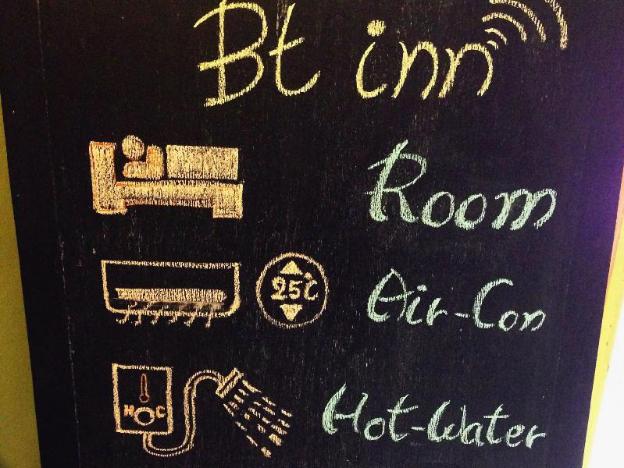 Bt inn
Room
25°C
Air-Con
H C
Hot-Water